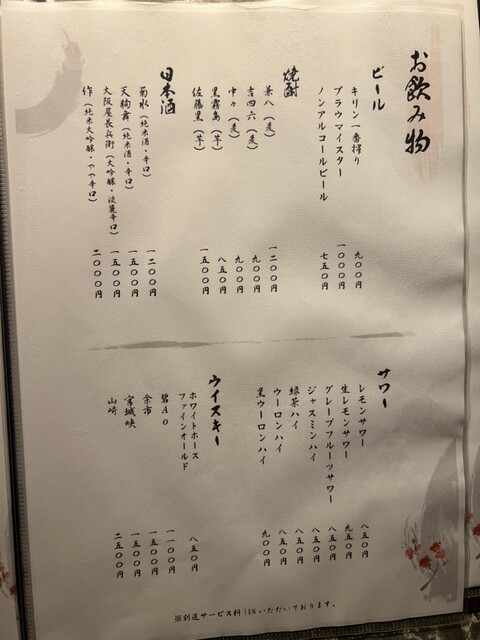 お飲み物
ビール
キリン一番搾り 九〇〇円
ブラウマイスター 一〇〇〇円
ノンアルコールビール 七五〇円
焼酎
兼八（麦） 一二〇〇円
吉四六（麦） 九〇〇円
中々（麦） 九〇〇円
黒霧島（芋） 八五〇円
佐藤黒（芋） 一五〇〇円
日本酒
菊水（純米酒・辛口） 一二〇〇円
天狗舞（純米酒・辛口） 一五〇〇円
大阪屋長兵衛（大吟醸・淡麗辛口） 一五〇〇円
作（純米大吟醸・やや辛口） 二〇〇〇円
サワー
レモンサワー 八五〇円
生レモンサワー 九五〇円
グレープフルーツサワー 八五〇円
ジャスミンハイ 八五〇円
緑茶ハイ 八五〇円
ウーロンハイ 八五〇円
黒ウーロンハイ 九〇〇円
ウイスキー
ホワイトホース
ファインオールド 八五〇円
碧AO 一一〇〇円
余市 一五〇〇円
宮城峡 一五〇〇円
山崎 二五〇〇円
※別途サービス料10%いただいております。